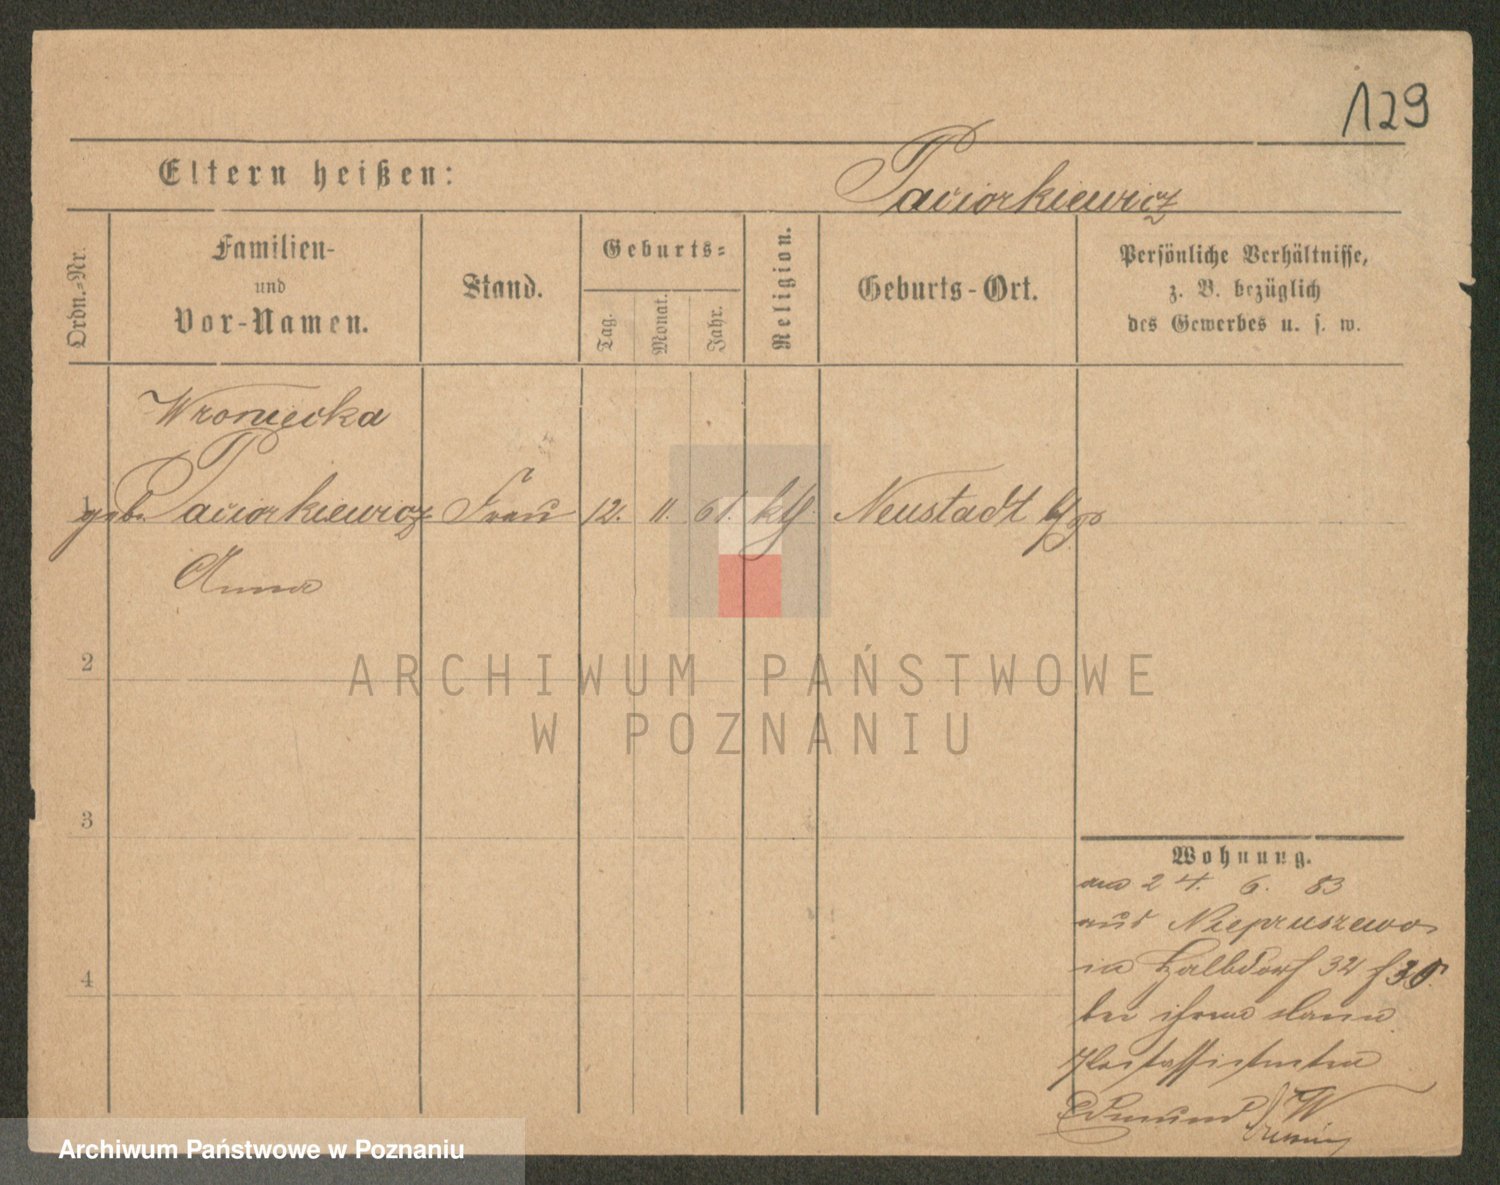 129
Eltern heißen:
Paciorkiewicz
Ordn.-Nr.
Familien-
und
Vor-Namen.
Stand.
Geburts-
Tag.
Monat.
Jahr.
Religion.
Geburts-Ort.
Persönliche Verhältnisse,
z. B. bezüglich
des Gewerbes u. s. w.
Wroniecka
1 geb. Paciorkiewicz Frau 12. 11. 61. kth. Neustadt b/P.
Anna
2
3
4
ARCHIWUM PAŃSTWOWE
W POZNANIU
Wohnung.
24. 6. 83
aus Niepruszewo
in Halbdorf 32
bei ihrem Mann
Postassistenten
Edmund W
Archiwum Państwowe w Poznaniu